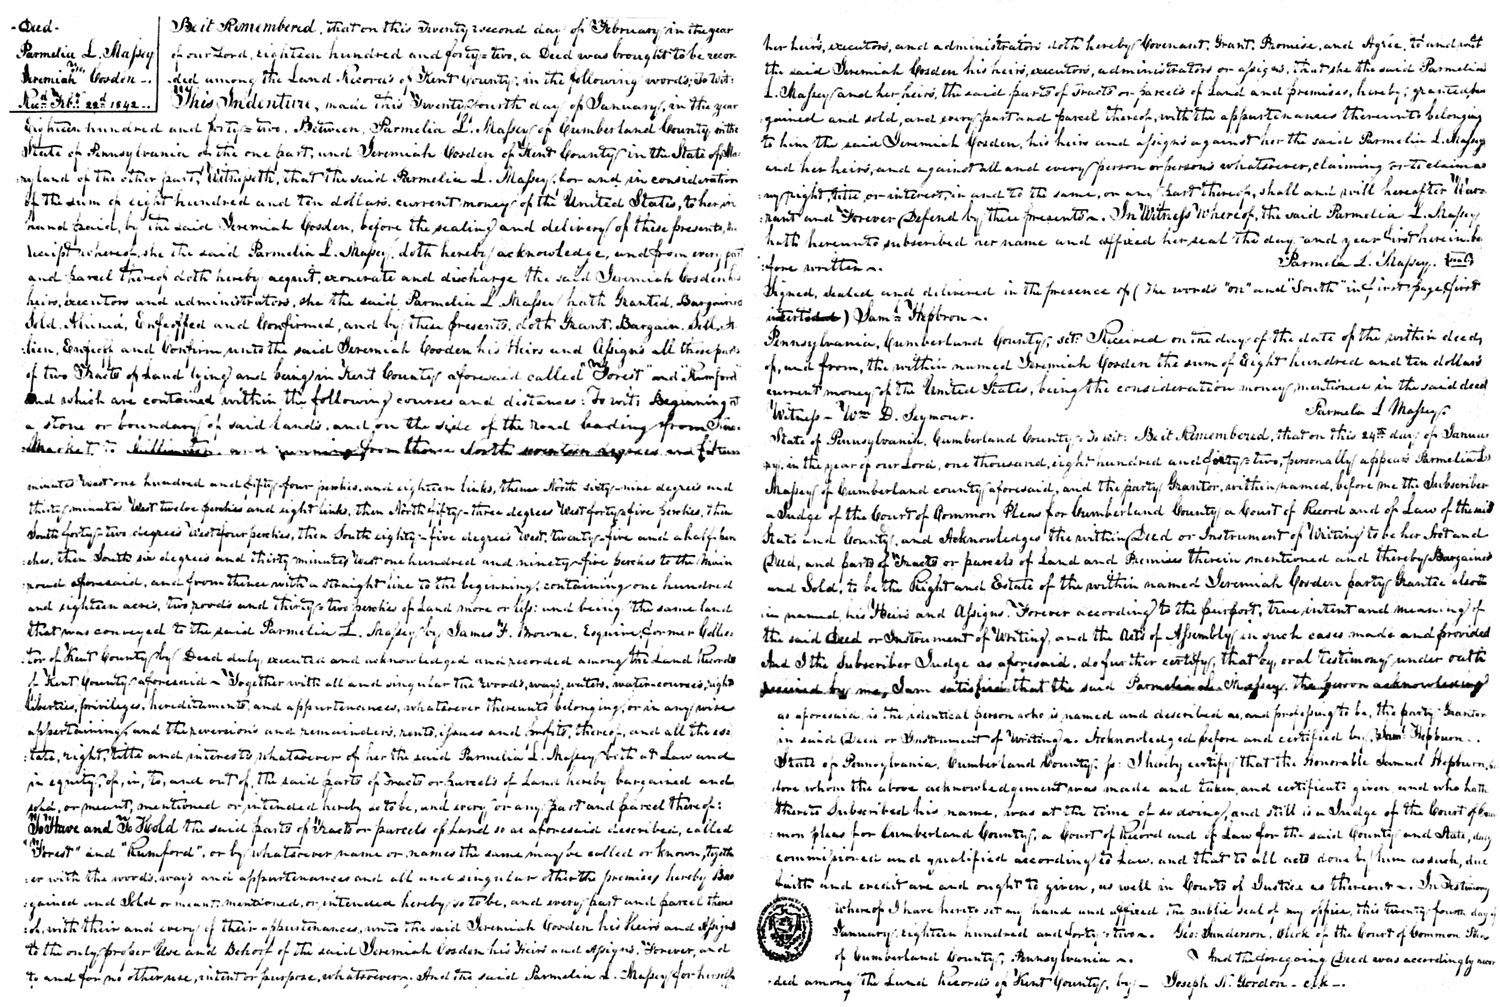 -Deed-
Parmelia L. Massey
To
Jeremiah Cosden -..
Recd. Feby. 22d. 1842...
Be it Remembered, that on this Twenty second day of February in the year
of our Lord, eighteen hundred and forty=two, a Deed was brought to be recor-
ded among the Land Records of Kent County, in the following words, To wit:
This Indenture, made this Twenty fourth day of January, in the year
Eighteen hundred and forty=two, Between, Parmelia L. Massey of Cumberland County, in the
State of Pennsylvania of the one part, and Jeremiah Cosden of Kent County in the State of Ma-
:ryland of the other part, Witnesseth, that the said Parmelia L. Massey, for and in consideration
of the sum of eight hundred and ten dollars, current money of the United States, to her in
hand paid, by the said Jeremiah Cosden, before the sealing and delivery of these presents, the
receipt whereof, she the said Parmelia L. Massey, doth hereby acknowledge, and from every part
and parcel thereof doth hereby acquit, exonerate and discharge the said Jeremiah Cosden his
heirs, executors and administrators, she the said Parmelia L. Massey hath Granted, Bargained
Sold, Aliened, Enfeoffed and Confirmed, and by these presents, doth Grant, Bargain, Sell, A-
:lien, Enfeoff and Confirm, unto the said Jeremiah Cosden his Heirs and Assigns all those parts
of two Tracts of Land lying and being in Kent County aforesaid called "Forest" and "Rumford"
and which are contained within the following courses and distances: to wit: Beginning at
a stone or boundary of said lands, and on the side of the road leading from
Market, to Millington and running from thence North seventeen degrees and fifteen
minutes West one hundred and fifty four perches, and eighteen links, thence North sixty-nine degrees and
thirty minutes West twelve perches and eight links, then North fifty-three degrees West forty-five perches, then
South forty-two degrees West four perches, then South eighty-five degrees West, twenty-five and a half per-
:ches, then South six degrees and thirty minutes West one hundred and ninety-five perches to the main
road aforesaid, and from thence with a straight line to the beginning, containing one hundred
and eighteen acres, two roods and thirty=two perches of Land more or less: and being the same land
that was conveyed to the said Parmelia L. Massey by James F. Browne, Esquire, former Collec-
:tor of Kent County by Deed duly executed and acknowledged and recorded among the Land Records
of Kent County aforesaid - Together with all and singular the woods, ways, waters, water-courses, rights
liberties, privileges, hereditaments, and appurtenances, whatever thereunto belonging, or in any wise
appertaining, and the reversions and remainders, rents, issues and profits, thereof, and all the es-
:tate, right, title and interests whatsoever of her the said Parmelia L. Massey both at Law and
in equity, of, in, to, and out of, the said parts of Tracts or parcels of Land hereby bargained and
sold, or meant, mentioned or intended hereby so to be, and every or any part and parcel thereof:
To Have and To Hold the said parts of Tracts or parcels of Land so as aforesaid described, called
"Forest" and "Rumford", or by whatsoever name or names the same may be called or known, togeth-
:er with the woods, ways and appurtenances and all and singular other the premises hereby Bar-
:gained and Sold or meant, mentioned, or intended hereby so to be, and every part and parcel there-
:of, with their and every of their appurtenances, unto the said Jeremiah Cosden his Heirs and Assigns
to the only proper Use and Behoof of the said Jeremiah Cosden his Heirs and Assigns, Forever, and
to and for no other use, intent or purpose, whatsoever. And the said Parmelia L. Massey for herself
her heirs, executors, and administrators doth hereby Covenant, Grant, Promise, and Agree, to and with
the said Jeremiah Cosden his heirs, executors, administrators or assigns, that she the said Parmelia
L. Massey and her heirs, the said parts of Tracts or parcels of Land and premises, hereby granted, bar-
:gained and sold, and every part and parcel thereof, with the appurtenances thereunto belonging
to him the said Jeremiah Cosden, his heirs and assigns against her the said Parmelia L. Massey
and her heirs, and against all and every person or persons whatsoever, claiming or to claim a-
:ny right, title, or interest, in and to the same, or any part thereof, shall and will hereafter War-
rant and Forever Defend by these presents -. In Witness Whereof, the said Parmelia L. Massey
hath hereunto subscribed her name and affixed her seal the day and year first herein be-
:fore written -.
Parmelia L. Massey. Seal
Signed, sealed and delivered in the presence of (the words "on" and "South" in first page first
inserted) Saml. Hepbron -.
Pennsylvania, Cumberland County, sct: Received on the day of the date of the within deed,
of, and from, the within named Jeremiah Cosden the sum of Eight hundred and ten dollars
current money of the United States, being the consideration money mentioned in the said deed
Witness - Wm. D. Seymour.
Parmelia L Massey.
State of Pennsylvania, Cumberland County, to wit: Be it Remembered, that on this 24th day of Janua-
ry, in the year of our Lord, one thousand, eight hundred and forty=two, personally appears Parmelia L
Massey of Cumberland county aforesaid, and the party Grantor, within named, before me the Subscriber
a Judge of the Court of Common Pleas for Cumberland County a Court of Record and of Law of the said
State and County, and Acknowledges the within Deed or Instrument of Writing to be her Act and
Deed, and parts of Tracts or parcels of Land and Premises therein mentioned and thereby Bargained
and Sold, to be the Right and Estate of the within named Jeremiah Cosden party Grantee also there-
in named, his Heirs and Assigns, Forever according to the purport, true intent and meaning of
the said Deed or Instrument of Writing, and the Acts of Assembly in such cases made and provided
And I the Subscriber Judge as aforesaid, do further certify, that by oral testimony under oath
received by me, I am satisfied that the said Parmelia L. Massey, the person acknowledging
as aforesaid, is the identical person who is named and described as, and professing to be, the party Grantor
in said Deed or Instrument of Writing -. Acknowledged before and certified by, Saml. Hepburn..
State of Pennsylvania, Cumberland County, ss: I hereby certify that the Honorable Samuel Hepburn, be-
:fore whom the above acknowledgement was made and taken, and certificate given, and who hath
thereto Subscribed his name, was at the time of so doing, and still is a Judge of the Court of Com-
:mon Pleas for Cumberland County, a Court of Record and of Law for the said County and State, duly
commissioned and qualified according to Law, and that to all acts done by him as such, due
faith and credit are and ought to given, as well in Courts of Justice as thereout -. In Testimony
whereof I have hereto set my hand and affixed the public seal of my office, this twenty fourth day of
January, eighteen hundred and forty=two -. Geo: Sanderson, Clerk of the Court of Common Pleas
of Cumberland County, Pennsylvania -.
And the foregoing Deed was accordingly recor-
-ded among the Land Records of Kent County, by - Joseph N. Gordon - clk -.